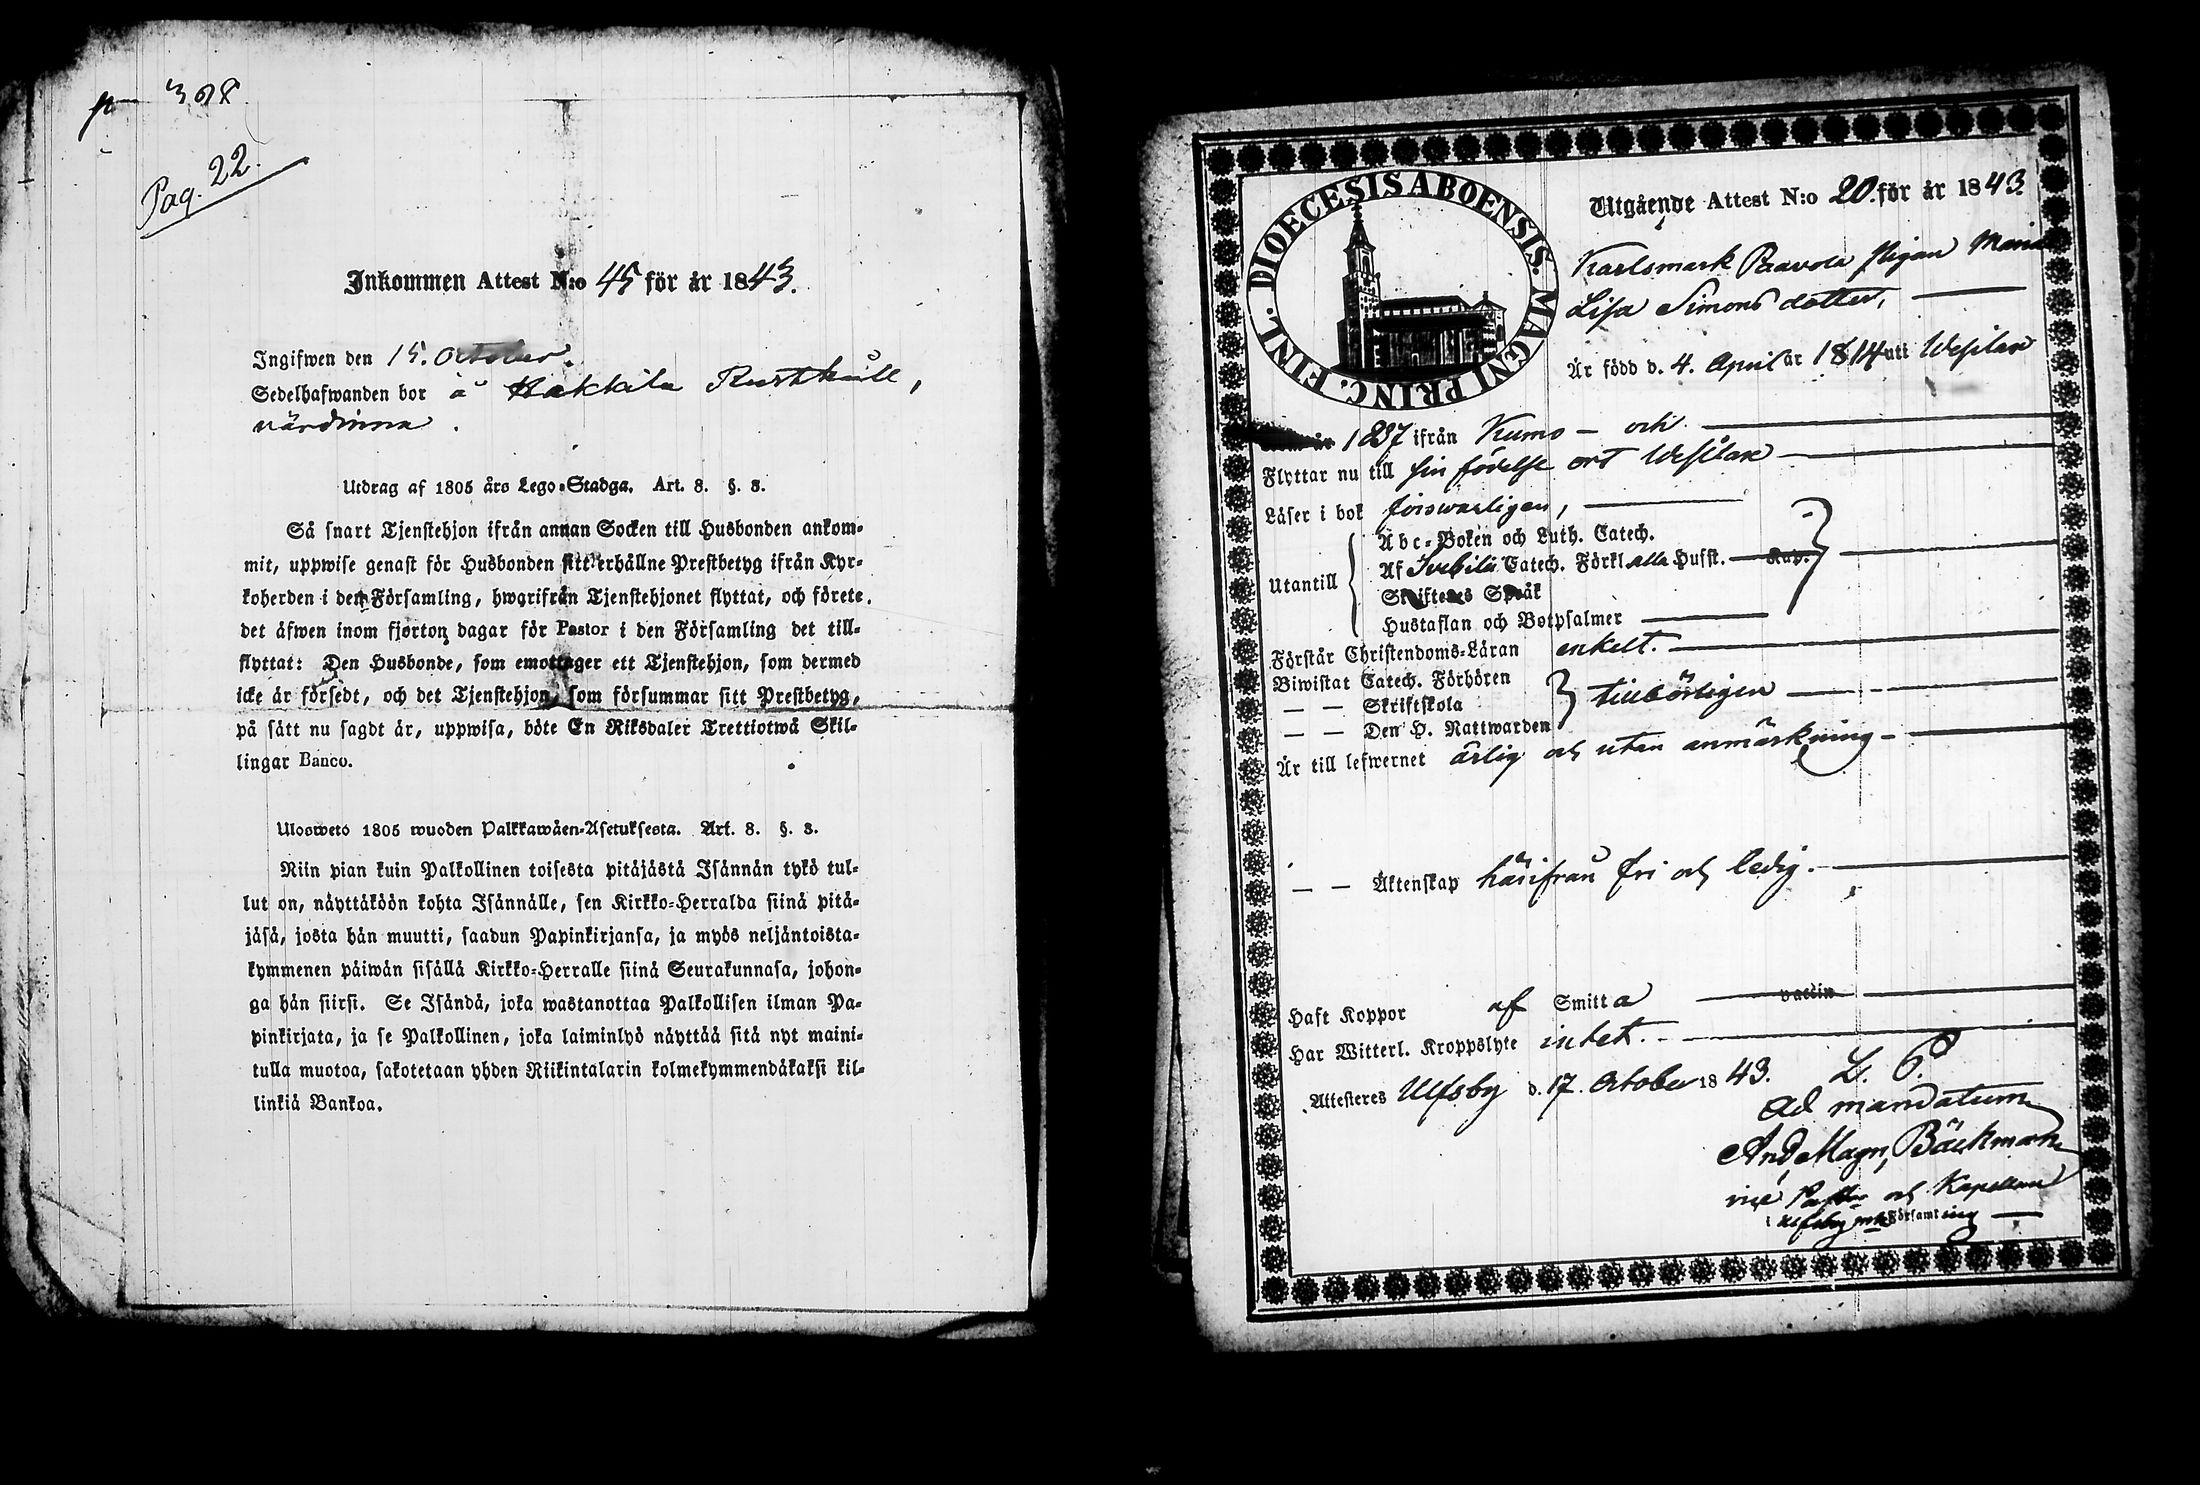 p 308
Pag. 22.
Inkommen Attest N:o 45 för år 1843.
Ingifwen den 15. October.
Sedelhafwanden bor å Hakkila Rusthåll,
värdinna.
Utdrag af 1805 års Lego-Stadga. Art. 8. §. 8.
Så snart Tjenstehjon ifrån annan Socken till Husbonden ankom-
mit, uppwise genast för Husbonden sitt erhållne Prestbetyg ifrån Kyr-
koherden i den Församling, hworifrån Tjenstehjonet flyttat, och förete
det äfwen inom fjorton dagar för Pastor i den Församling det till-
flyttat: Den Husbonde, som emottager ett Tjenstehjon, som dermed
icke är försedt, och det Tjenstehjon, som försummar sitt Prestbetyg,
på sätt nu sagdt är, uppwisa, böte En Riksdaler Trettiotwå Skil-
lingar Banco.
Uloswets 1805 wuoden Palkkawäen-Asetuksesta. Art. 8. §. 8.
Niin pian kuin Palkollinen toisesta pitäjästä Isännän tykö tul-
lut on, näyttäköön kohta Isännälle, sen Kirkko-Herralda siinä pitä-
jäsä, josta hän muutti, saadun Papinkirjansa, ja myös neljäntoista-
kymmenen päiwän sisällä Kirkko-Herralle siinä Seurakunnasa, johon-
ga hän siirsi. Se Isändä, joka wastanottaa Palkollisen ilman Pa-
pinkirjata, ja se Palkollinen, joka laiminlyö näyttää sitä nyt maini-
tulla muotoa, sakotetaan yhden Riikintalarin kolmekymmendäkaksi kil-
linkiä Bankoa.
DIOECESIS ABOENSIS. MAGNI PRINC. FINL.
Utgående Attest N:o 20 för år 1843
Karlsmark Paavola Pigan Maria
Lisa Simons dotter,
Är född d. 4. April år 1814 uti
år 1837 ifrån Kumo och
Flyttar nu till sin födelse ort
Läser i bok försvarligen,
Utantill
Abc-Boken och Luth. Catech.
Af Catech. Förkl. alla Hufst. Kap.
Skriftenes Språk
Hustaflan och Botpsalmer
Förstår Christendoms-Läran enkelt.
Biwistat Catech. Förhören
— — Skriftskola tillbörligen
— — Den H. Nattwarden
Är till lefwernet ärlig och utan anmärkning
— — Äktenskap härifrån fri och ledig.
Haft Koppor af Smitta vaccin
Har Witterl. Kroppslyte intet.
Attesteres Ulfsby d. 17. October 1843. L. S.
Ad mandatum
And Magn, Bäckman
vice Pastor och Kapellan
i Ulfsby Församling